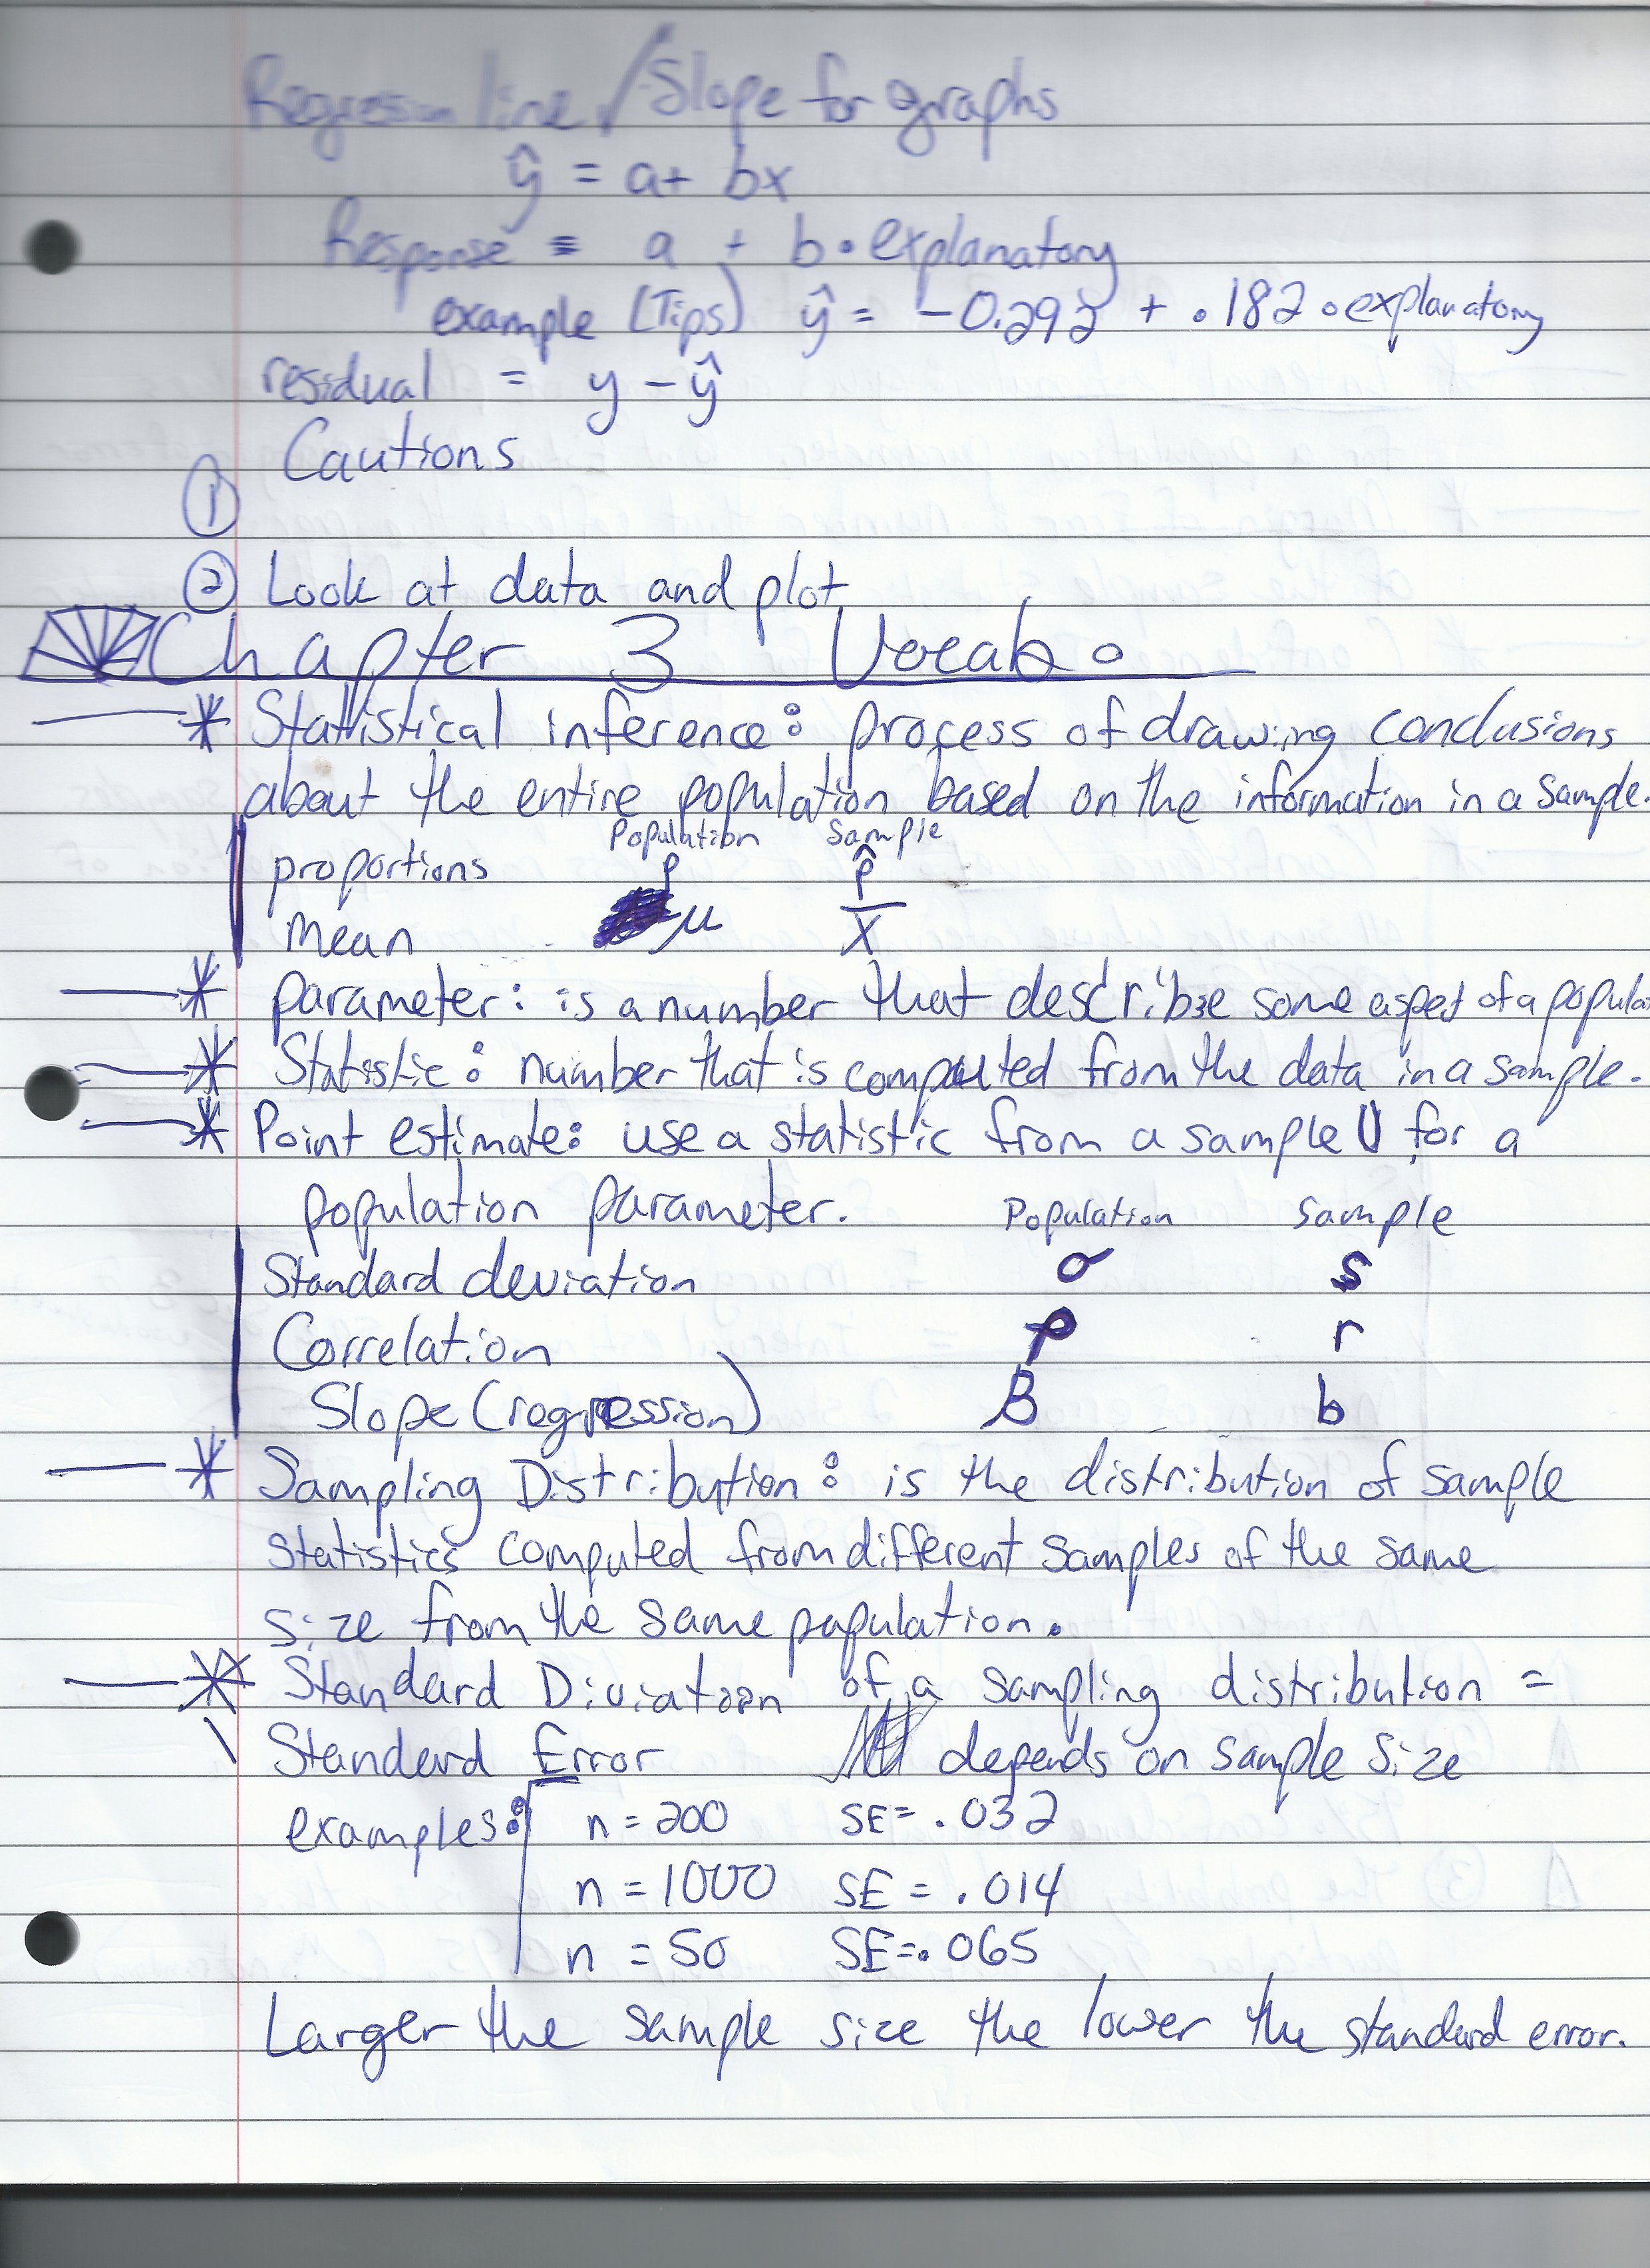 Regression line / Slope for graphs
ŷ = a + bx
Response = a + b • explanatory
example (Tips) ŷ = -0.292 + .182 • explanatory
residual = y - ŷ
Cautions
①
② Look at data and plot
Chapter 3 Vocab
* Statistical inference: process of drawing conclusions
about the entire population based on the information in a sample.
Population Sample
proportions p p̂
mean μ x̄
* parameter: is a number that describe some aspet of a popula
* Statistic: number that is computed from the data in a sample.
* Point estimate: use a statistic from a sample for a
population parameter. Population Sample
Standard deviation σ s
Correlation ρ r
Slope (regression) B b
* Sampling Distribution: is the distribution of sample
statistics computed from different samples of the same
size from the same population.
* Standard Diviatoin of a sampling distribution =
Standard Error depends on sample size
examples: n = 200 SE = .032
n = 1000 SE = .014
n = 50 SE = .065
Larger the sample size the lower the standard error.